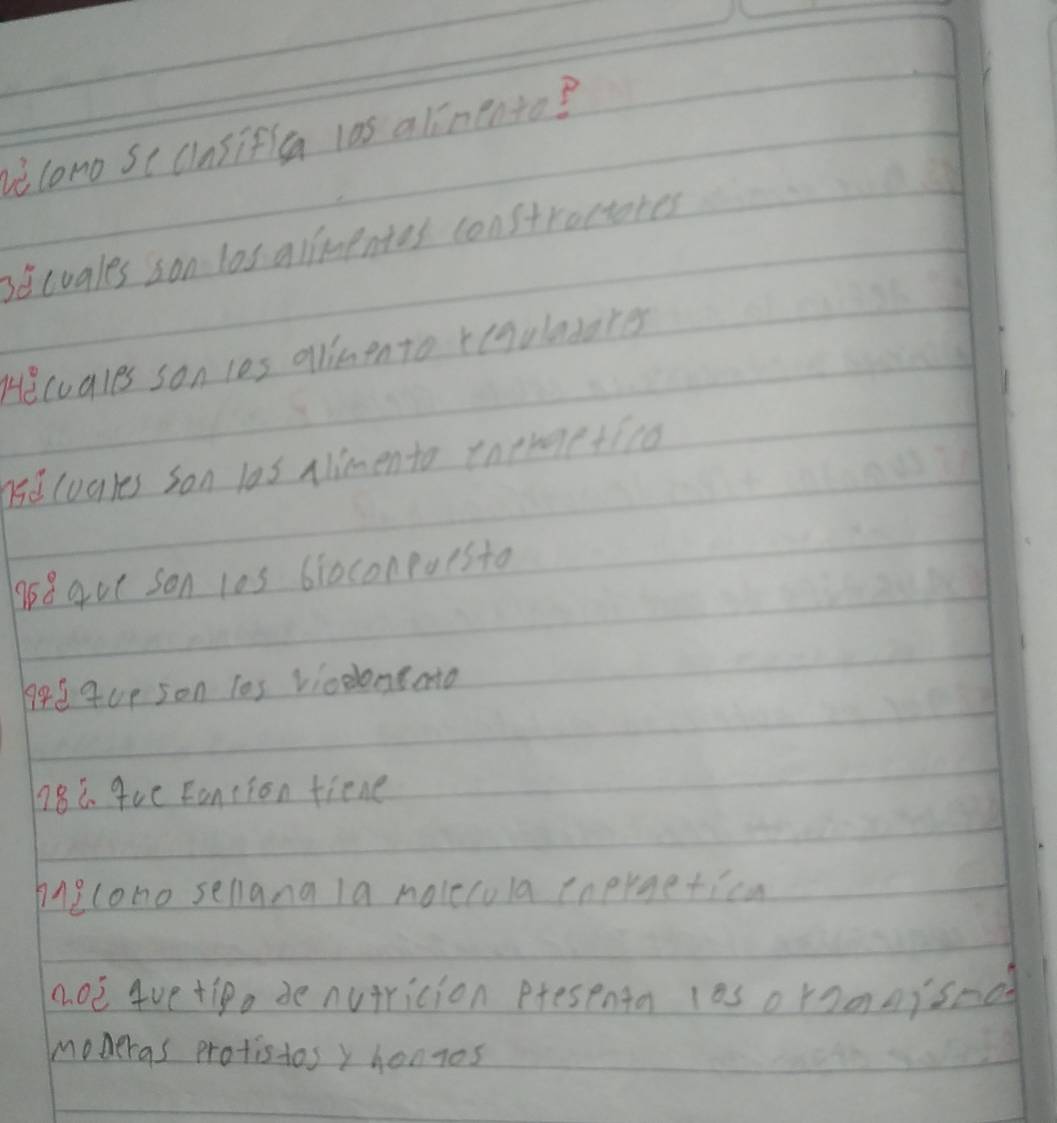 12¿como se clasifica los alimento?
13¿cuales son los alimentos constructores
14¿cuales son los alimento reguladores
15¿cuales son los alimento energetico
16¿que son los bioconpuesto
17¿que son los
18¿ que funcion tiene
19¿como sellana la molecula energetica
20¿ que tipo de nutricion presenta los organismo
moneras protistos y hongos